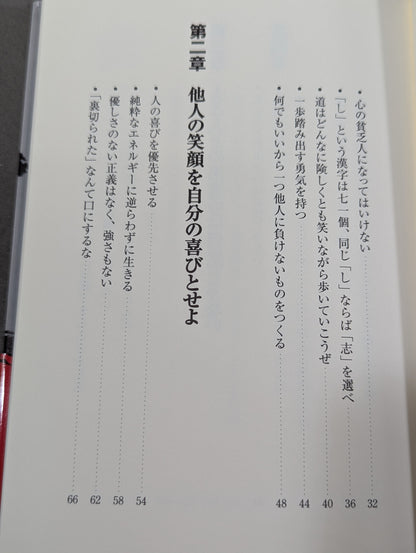 ・心の貧乏人になってはいけない 32
・「し」という漢字は七一個、同じ「し」ならば「志」を選べ 36
・道はどんなに険しくとも笑いながら歩いていこうぜ 40
・一歩踏み出す勇気を持つ 44
・何でもいいから一つ他人に負けないものをつくる 48
第二章 他人の笑顔を自分の喜びとせよ
・人の喜びを優先させる 54
・純粋なエネルギーに逆らわずに生きる 58
・優しさのない正義はなく、強さもない 62
・「裏切られた」なんて口にするな 66